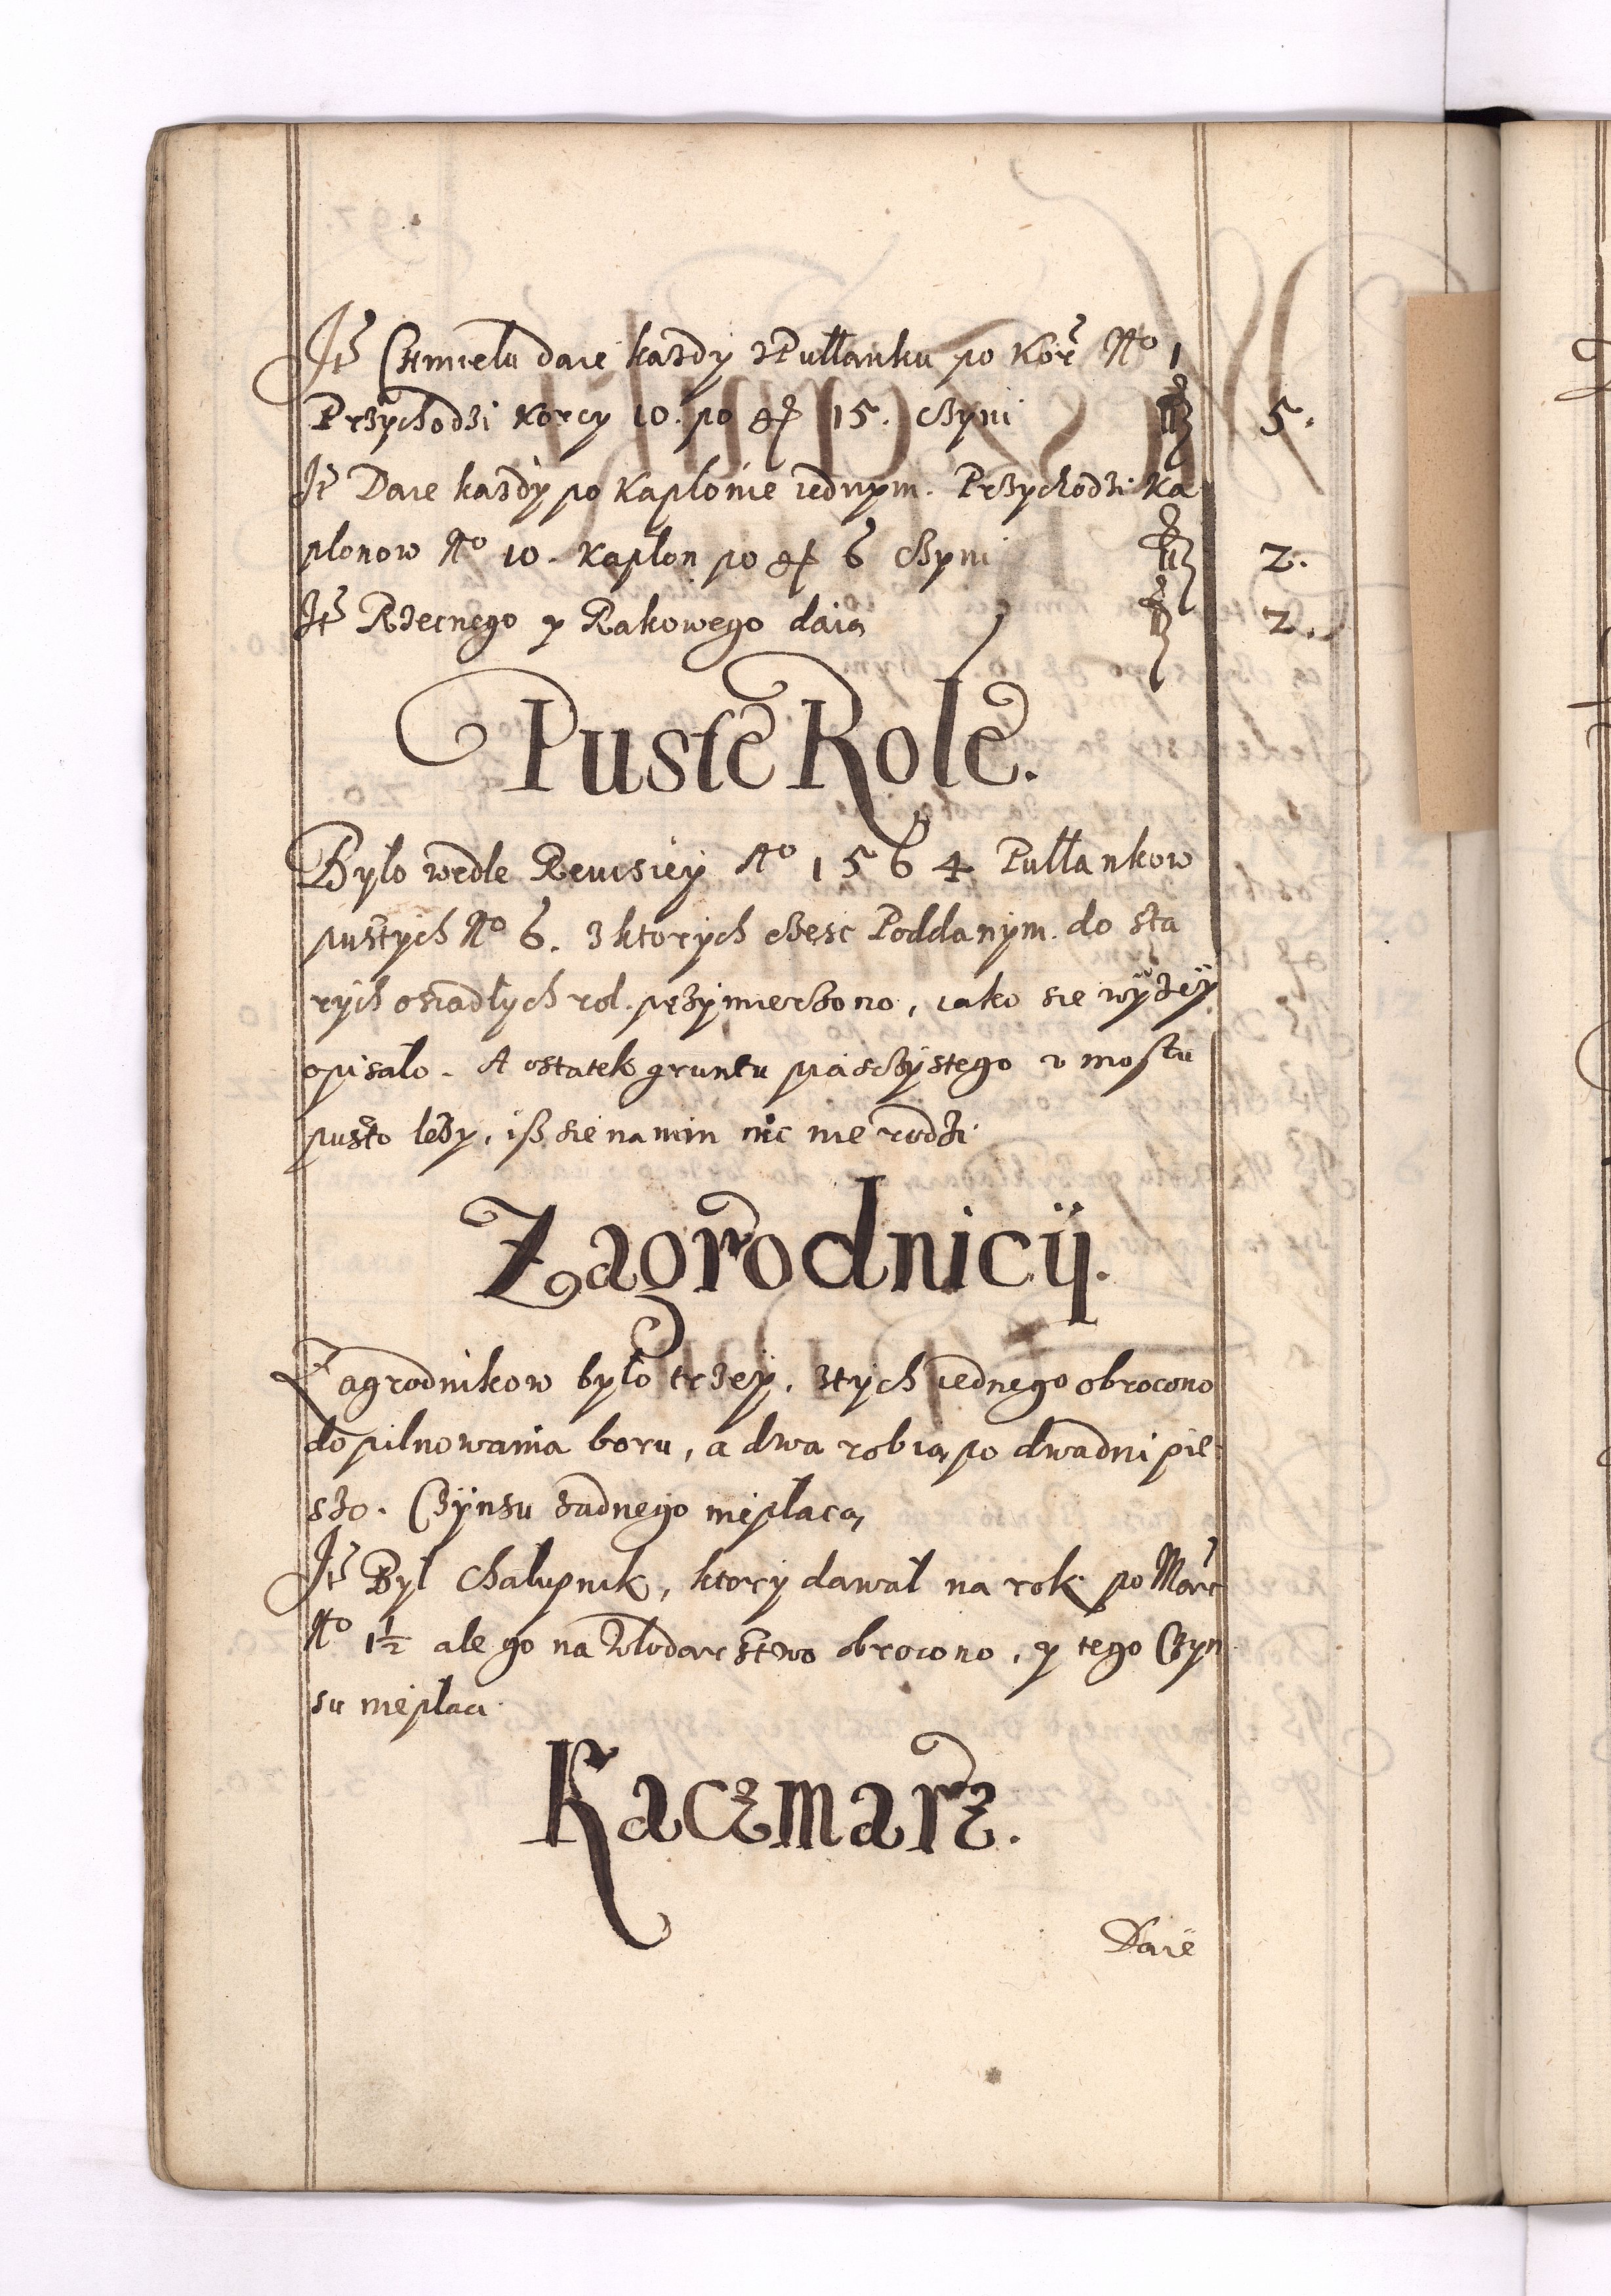 Itē Chmielu daie kazdy z Pułłanku po Korc̃ No 1
Przychodzi Korcy 10. po gr 15. czyni fl 5.
Itē Daie kazdy po Kapłonie iednym. Przychodzi Ka
płonow No 10. Kapłon po gr 6 czyni fl 2.
Itē Rzecznego y Rakowego daią fl 2.
Puste Role.
Było wedle Reuisiey Ao 1564 Pułłankow
pustych No 6. z ktorych czesc Poddanym do sta
rych osiadłych rol przymierzono, iako sie wyzey
opisało. A ostatek gruntu piasczystego v mostu
pusto lezy, iß sie na nim nic nie rodzi
Zagrodnicy.
Zagrodnikow było trzey, z tych iednego obrocono
do pilnowania boru, a dwa robią po dwa dni pie
szo. Czynszu zadnego niepłacą
Itē Był Chałupnik, ktory dawał na rok po Marc̃
No 1½ ale go na Włodarstwo obrocono, y tego Czyn
su niepłaci.
Kaczmarz.
Daie